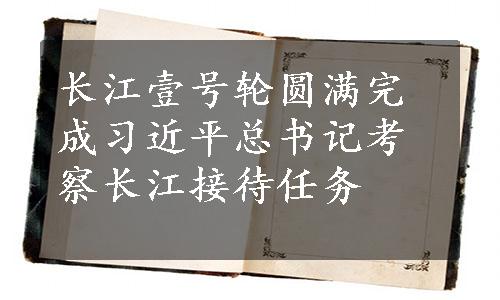 长江壹号轮圆满完
成习近平总书记考
察长江接待任务